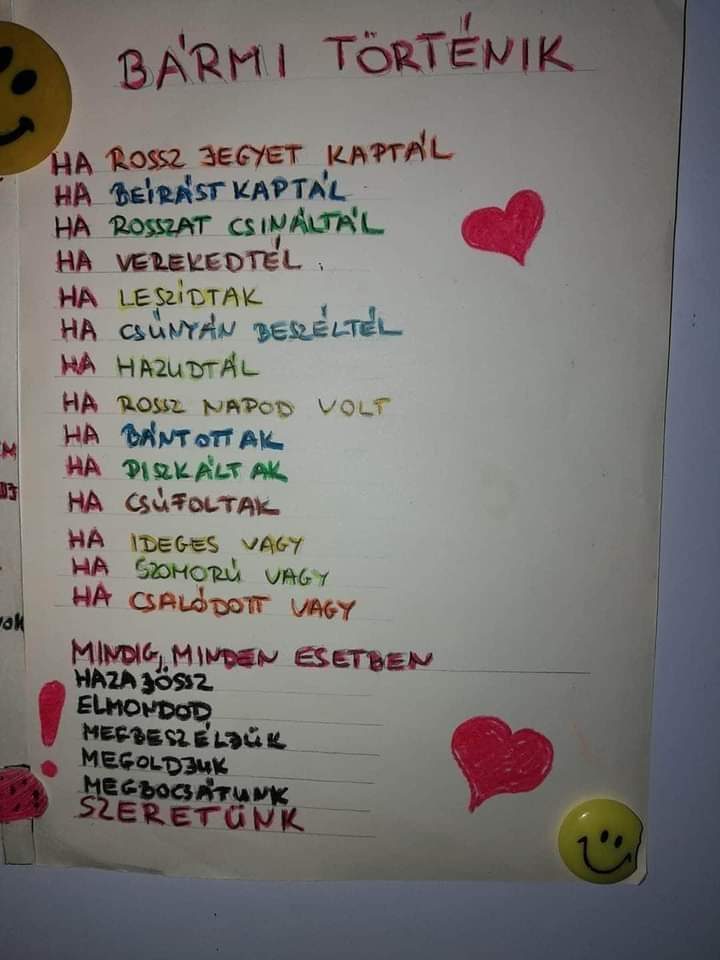 BÁRMI TÖRTÉNIK
HA ROSSZ JEGYET KAPTÁL
HA BEÍRÁST KAPTÁL
HA ROSSZAT CSINÁLTÁL
HA VEREKEDTÉL
HA LESZÍDTAK
HA CSÚNYÁN BESZÉLTÉL
HA HAZUDTÁL
HA ROSSZ NAPOD VOLT
HA BÁNTOTTAK
HA PISZKÁLTAK
HA CSÚFOLTAK
HA IDEGES VAGY
HA SZOMORÚ VAGY
HA CSALÓDOTT VAGY
MINDIG, MINDEN ESETBEN
HAZAJÖSSZ
ELMONDOD
MEGBESZÉLJÜK
MEGOLDJUK
MEGBOCSÁTUNK
SZERETÜNK
!